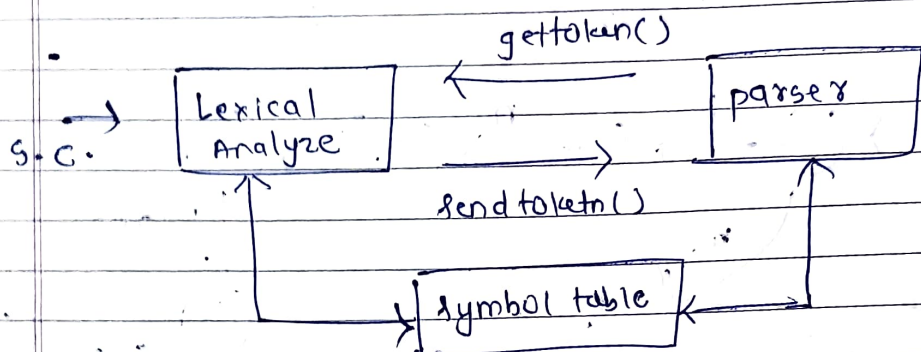 gettoken()
Lexical
Analyze
parser
S.C.
send toketn()
symbol table